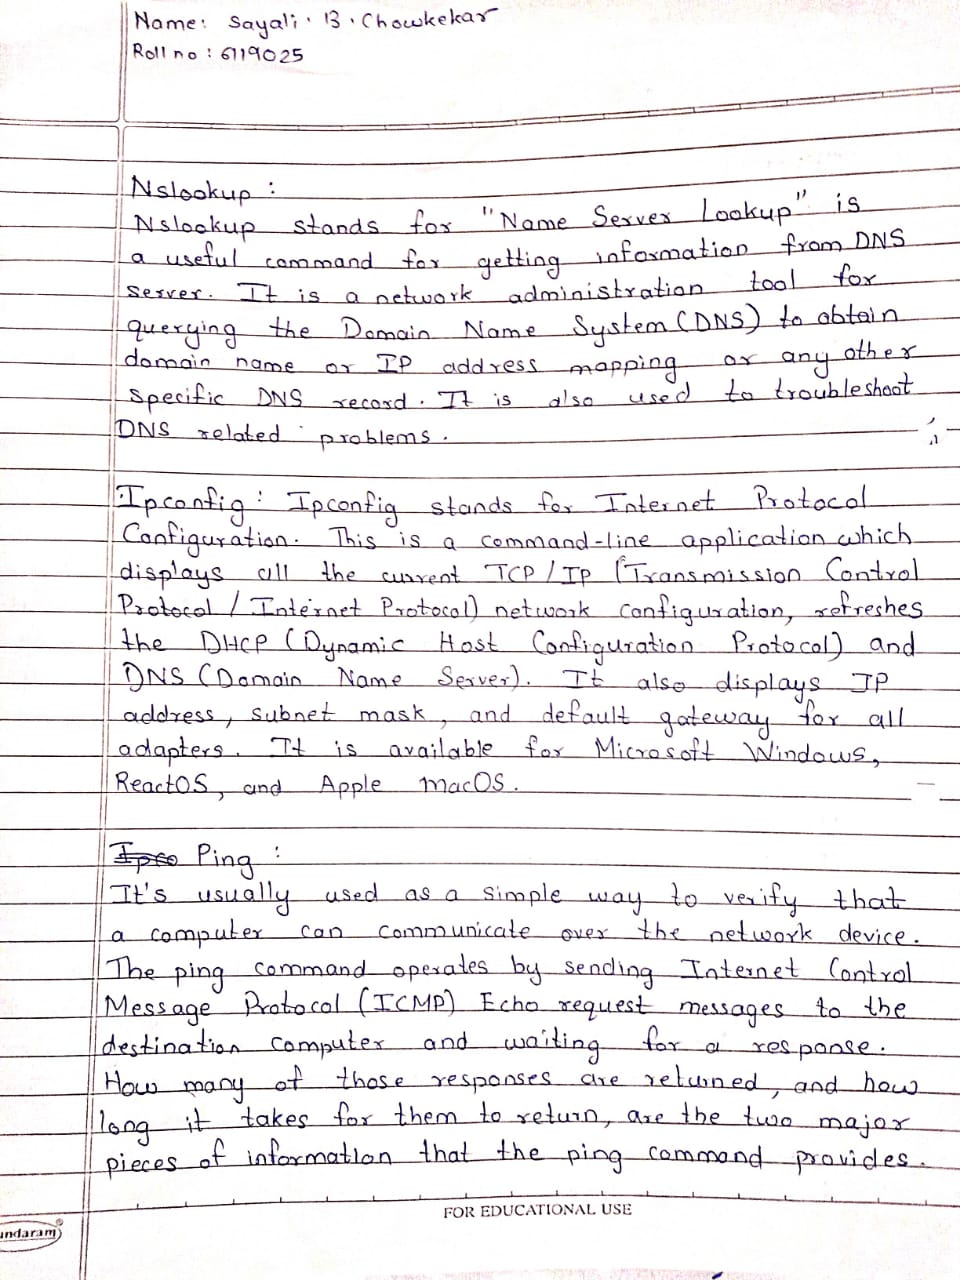 Name: Sayali. B. Chowkekar
Roll no : 6119025
Nslookup :
Nslookup stands for "Name Server Lookup" is
a useful command for getting information from DNS
server. It is a network administration tool for
querying the Domain Name System (DNS) to obtain
domain name or IP address mapping or any other
specific DNS record. It is also used to troubleshoot
DNS related problems.
Ipconfig : Ipconfig stands for Internet Protocol
Configuration. This is a command-line application which
displays all the current TCP / IP (Transmission Control
Protocol / Internet Protocol) network configuration, refreshes
the DHCP (Dynamic Host Configuration Protocol) and
DNS (Domain Name Server). It also displays IP
address, subnet mask, and default gateway for all
adapters. It is available for Microsoft Windows,
ReactOS, and Apple macOS.
Ping :
It's usually used as a simple way to verify that
a computer can communicate over the network device.
The ping command operates by sending Internet Control
Message Protocol (ICMP) Echo request messages to the
destination computer and waiting for a response.
How many of those responses are returned, and how
long it takes for them to return, are the two major
pieces of information that the ping command provides.
FOR EDUCATIONAL USE
undaram